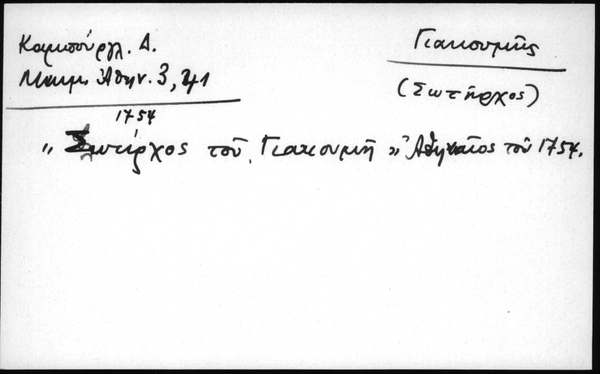 Καμπούργλ. Δ.
Μνημ. Ἀθην. 3, 241
1754
Γιακουμῆς
(Σωτῆρχος)
„ Σωτήρχος τοῦ Γιακουμῆ ” Ἀθηναῖος τοῦ 1754.